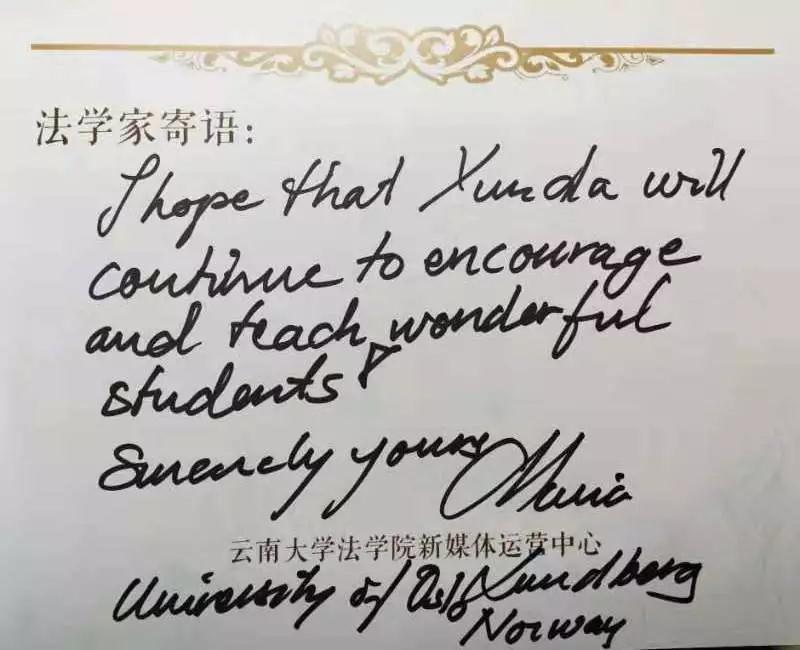 法学家寄语:
I hope that Yunda will
continue to encourage
and teach wonderful
students!
Sincerely yours Maria
云南大学法学院新媒体运营中心
University of Oslo Lundberg
Norway